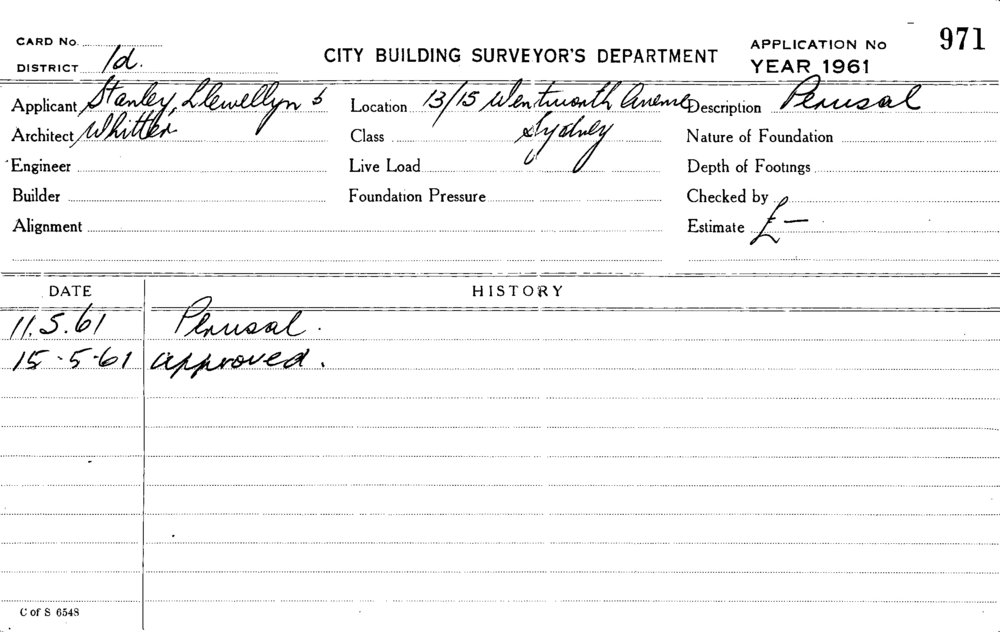 CARD No.
DISTRICT 1d.
CITY BUILDING SURVEYOR'S DEPARTMENT
APPLICATION No 971
YEAR 1961
Applicant Stanley, Llewellyn &
Architect Whitten
Engineer
Builder
Alignment
Location 13/15 Wentworth Avenue
Class Sydney
Live Load
Foundation Pressure
Description Perusal
Nature of Foundation
Depth of Footings
Checked by
Estimate £ —
DATE HISTORY
11.5.61 Perusal.
15-5-61 approved.
C of S 6548